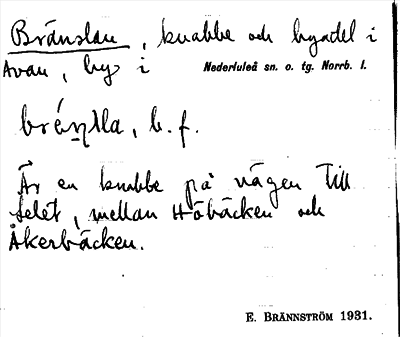 Bränslan, knabbe och byadel i
Avan, by i Nederluleå sn. o. tg. Norrb. l.
b. f.
Är en knabbe på vägen till
Selet, mellan Höbäcken och
Åkerbäcken.
E. BRÄNNSTRÖM 1931.